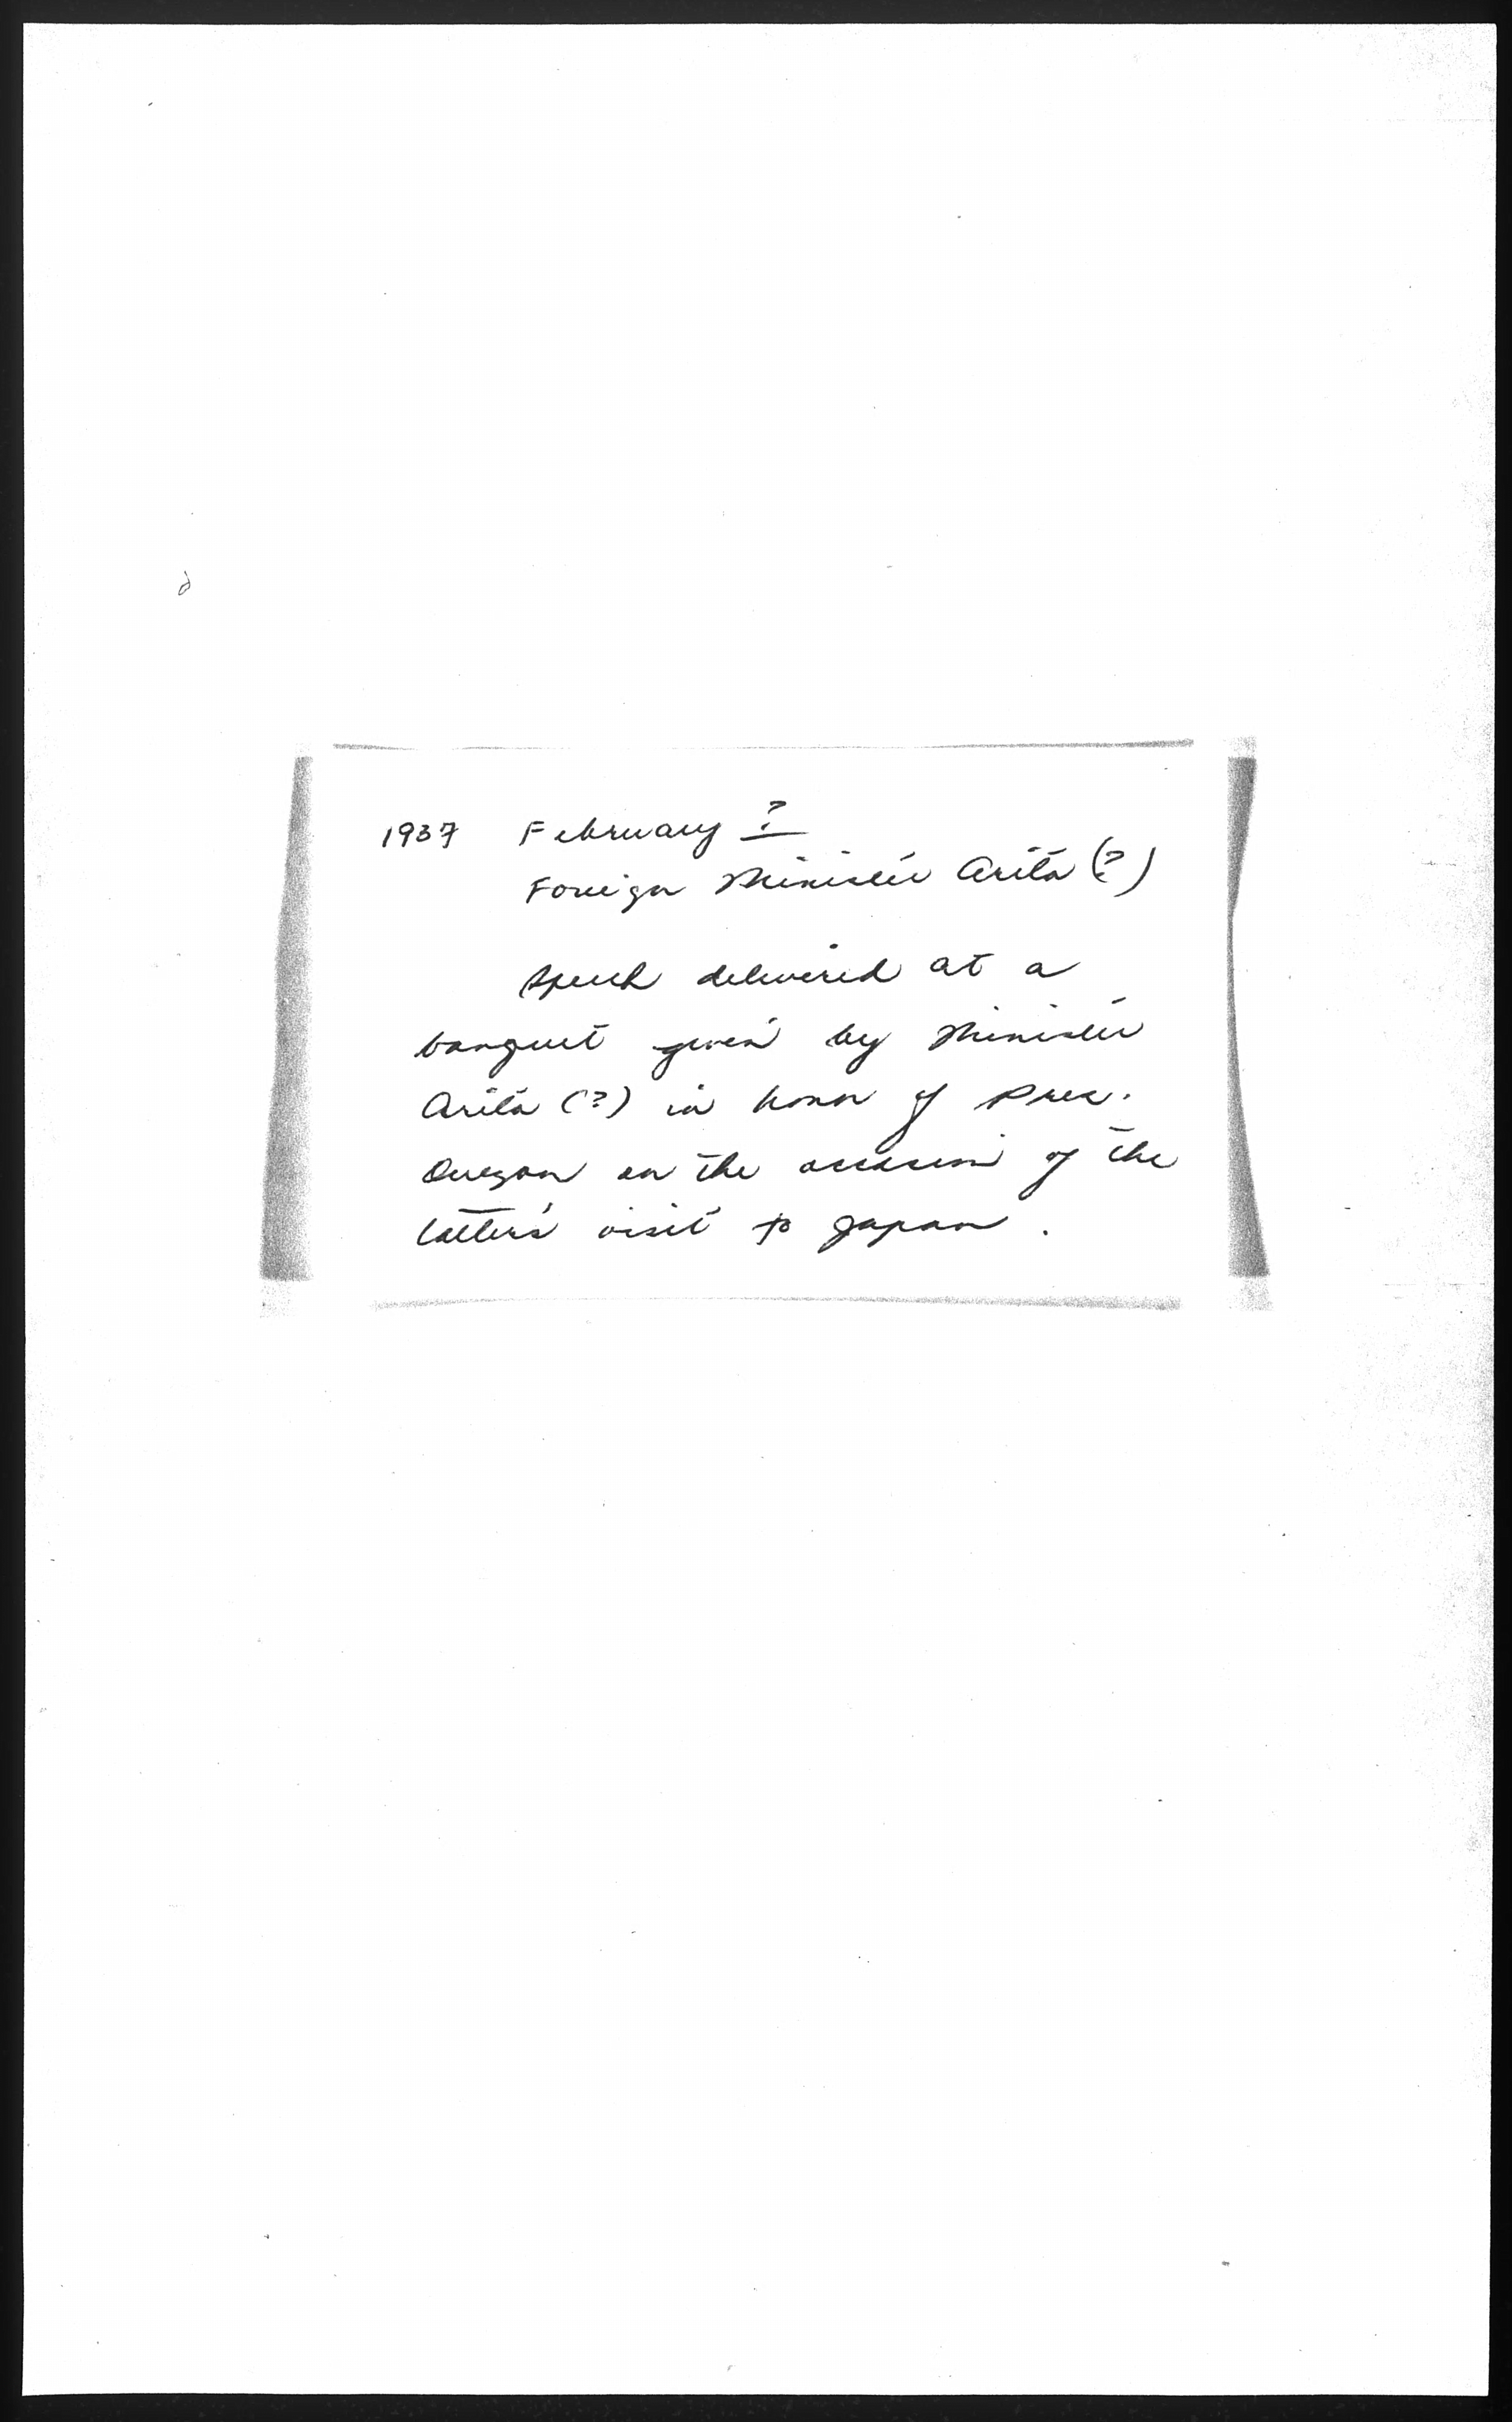 1937 February ?
Foreign Minister Arita (?)
Speech delivered at a
banquet given by Minister
Arita (?) in honor of Pres.
Quezon on the occasion of the
latter's visit to Japan.